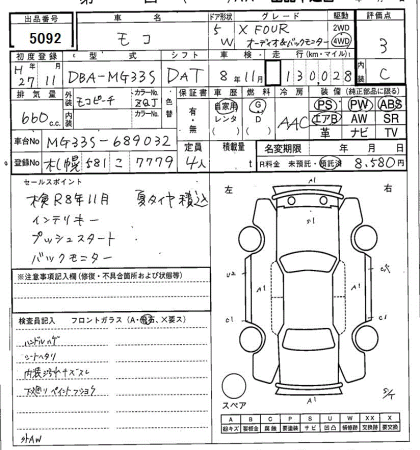 出品番号 車名 ドア形状 グレード 駆動 評価点
5092 モコ 5 W X FOUR オーディオ&バックモニター 2WD 4WD 3
初度登録 型式 シフト 車検 走行(km・マイル) 内装
H 27 11 DBA-MG33S DAT 8年11月 130,028 C
排気量 外装 カラー 色替 車歴 燃料 冷房 装備(純正部品に限る)
660c.c. モコピーチ カラーNo. ZQJ 有・無 自家用 レンタ G D AAC PS PW ABS
エアB AW SR
革 ナビ TV
車台No MG33S-689032 定員 積載量 名変期限 年 月 日
登録No 札幌 581 こ 7779 4人 t R料金 未預託・預託済 8,580円
セールスポイント
検R8年11月 夏タイヤ積込
インテリキー
プッシュスタート
バックモニター
左 右
※注意事項記入欄(修復・不具合箇所および状態等)
検査員記入 フロントガラス(A・飛石、X要ス)
ハンドルハゲ
シートヘタリ
内装コゲキズスレ
下廻りペイントフショク
外AW
A1
A1
U2
C1
A1
C1
A1
S/T
スペア
A B C P S U W X XX ×